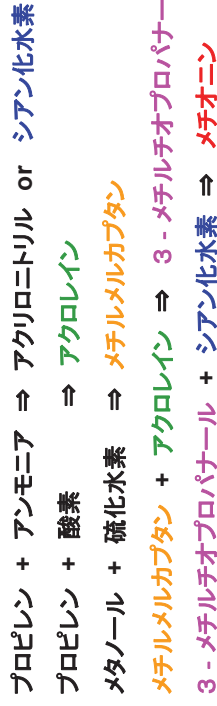 プロピレン + アンモニア ⇒ アクリロニトリル or シアン化水素
プロピレン + 酸素 ⇒ アクロレイン
メタノール + 硫化水素 ⇒ メチルメルカプタン
メチルメルカプタン + アクロレイン ⇒ 3 - メチルチオプロパナー
3 - メチルチオプロパナール + シアン化水素 ⇒ メチオニン